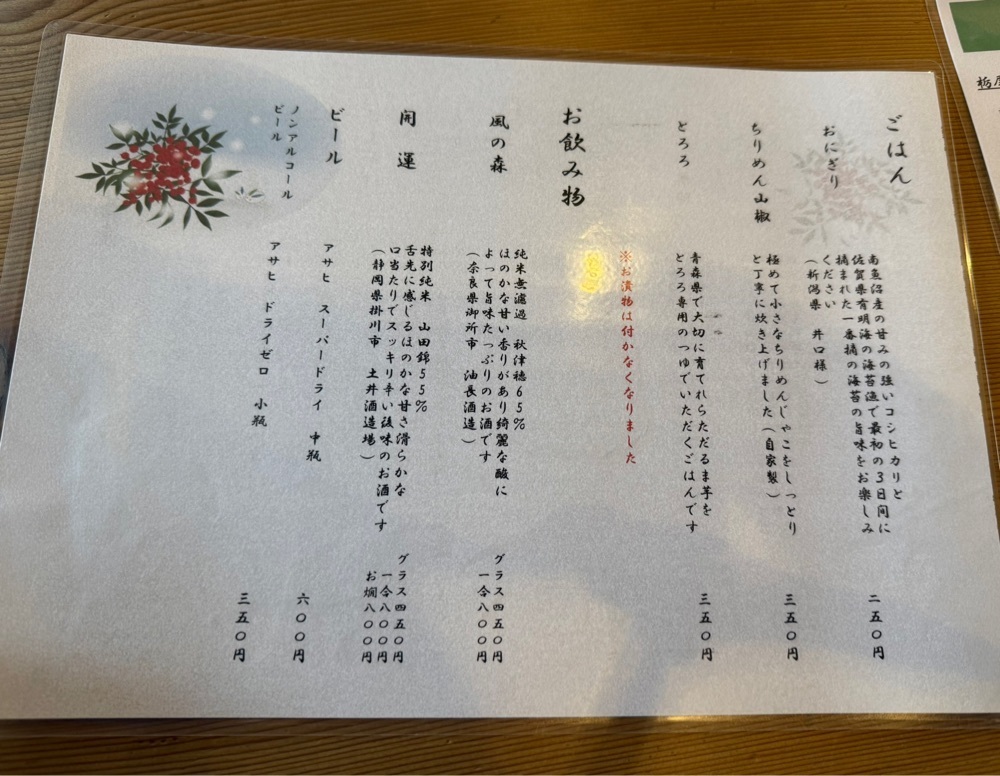 ごはん
おにぎり
南魚沼産の甘みの強いコシヒカリと
佐賀県有明海の海苔漁で最初の3日間に
摘まれた一番摘の海苔の旨味をお楽しみ
ください
（新潟県　井口様）
二五〇円
ちりめん山椒
極めて小さなちりめんじゃこをしっとり
と丁寧に炊き上げました（自家製）
三五〇円
とろろ
青森県で大切に育てれらただるま芋を
とろろ専用のつゆでいただくごはんです
三五〇円
※お漬物は付かなくなりました
お飲み物
風の森
純米無濾過　秋津穂65％
ほのかな甘い香りがあり綺麗な酸に
よって旨味たっぷりのお酒です
（奈良県御所市　油長酒造）
グラス四五〇円
一合八〇〇円
開運
特別純米　山田錦55％
舌先に感じるほのかな甘さ滑らかな
口当たりでスッキリ辛い後味のお酒です
（静岡県掛川市　土井酒造場）
グラス四五〇円
一合八〇〇円
お燗八〇〇円
ビール
アサヒ　スーパードライ　中瓶
六〇〇円
ノンアルコール
ビール
アサヒ　ドライゼロ　小瓶
三五〇円